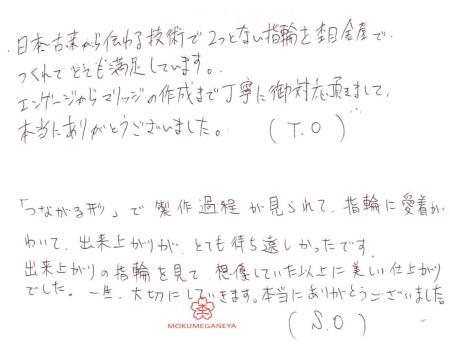 日本古来から伝わる技術で2つとない指輪を杢目金屋で
つくれてとても満足しています。
エンゲージからマリッジの作成まで丁寧に御対応頂きまして、
本当にありがとうございました。
(T.O)
「つながる形」で製作過程が見られて、指輪に愛着が
わいて、出来上がりが、とても待ち遠しかったです。
出来上がりの指輪を見て、想像していた以上に美しい仕上がり
でした。一生、大切にしていきます。本当にありがとうございました。
MOKUMEGANEYA
(S.O)